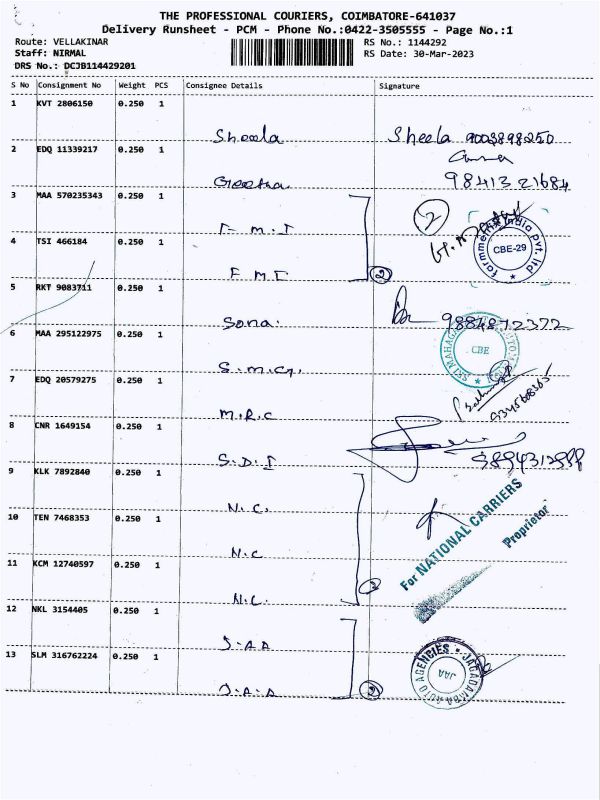 THE PROFESSIONAL COURIERS, COIMBATORE-641037
Delivery Runsheet - PCM - Phone No.:0422-3505555 - Page No.:1
Route: VELLAKINAR
RS No.: 1144292
Staff: NIRMAL
RS Date: 30-Mar-2023
DRS No.: DCJB114429201
S No Consignment No Weight PCS Consignee Details Signature
1 KVT 2806150 0.250 1
Sheela Sheela
2 EDQ 11339217 0.250 1
Geetha 9841321684
3 MAA 570235343 0.250 1
F.M.I 2
CBE-29
4 TSI 466184 0.250 1
F M I 2
5 RKT 9083711 0.250 1
Sona. 9884872372
6 MAA 295122975 0.250 1
S.M.G. CBE
7 EDQ 20579275 0.250 1
M.R.C
8 CNR 1649154 0.250 1
S.D.I
9 KLK 7892840 0.250 1
N.C.
For NATIONAL CARRIERS
Proprietor
10 TEN 7468353 0.250 1
N.C
11 KCM 12740597 0.250 1
N.C.
12 NKL 3154405 0.250 1
J.A.A
13 SLM 316762224 0.250 1
J.A.A 2
JAGADAMBA AUTO AGENCIES
JAA